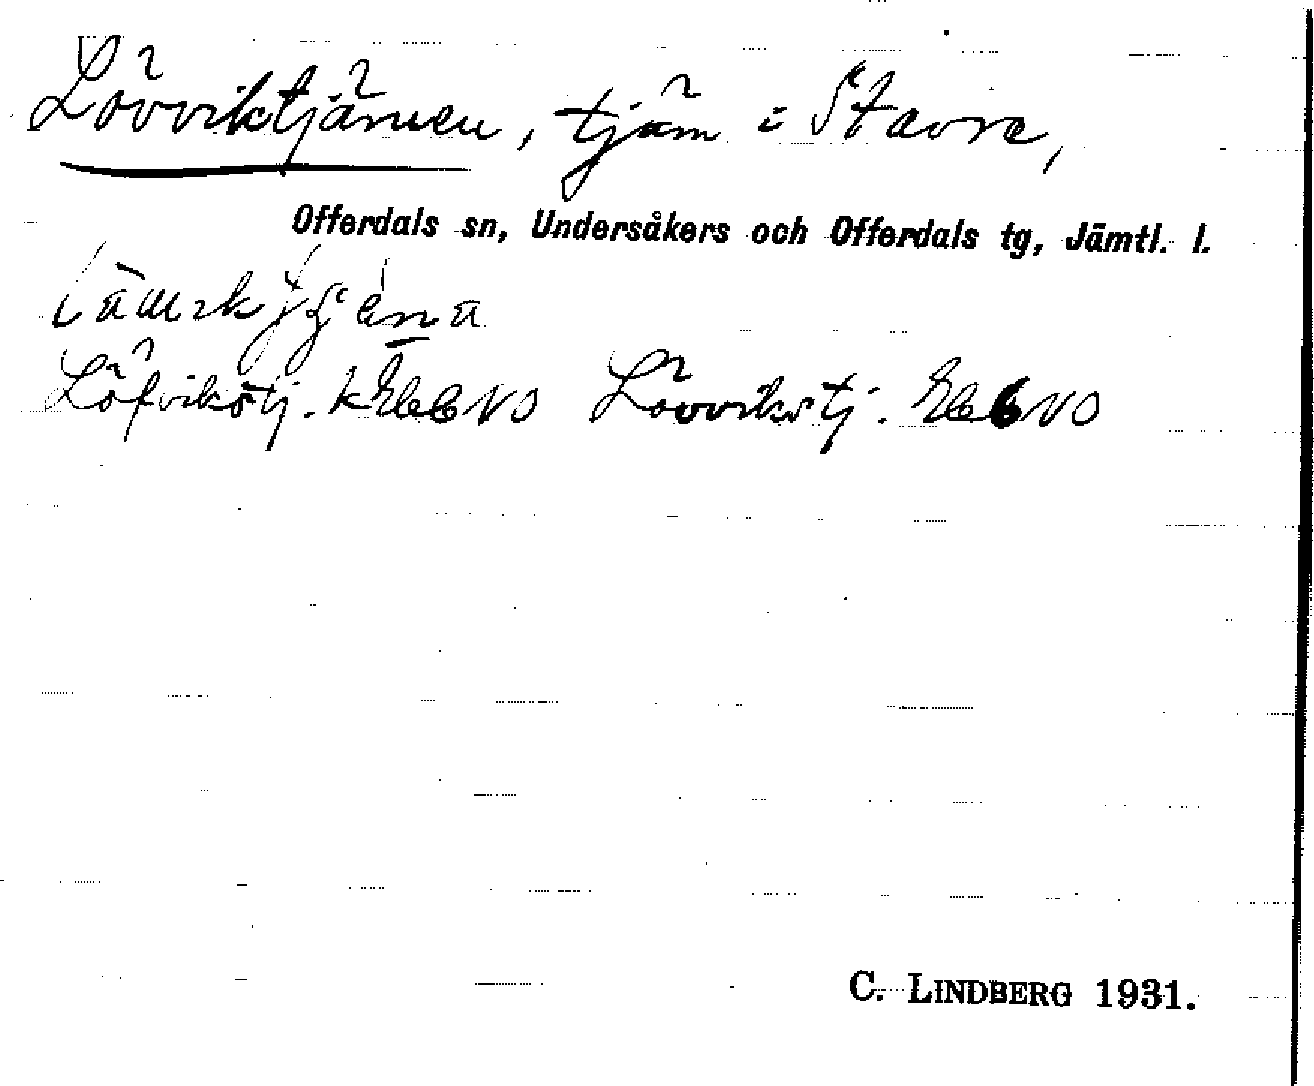 Lövviktjärnen, tjärn i Stavre,
Offerdals sn, Undersåkers och Offerdals tg, Jämtl. l.
Löfvikstj. kEbl 61 NO Lövvikstj. Ebl 61 NO
C. LINDBERG 1931.